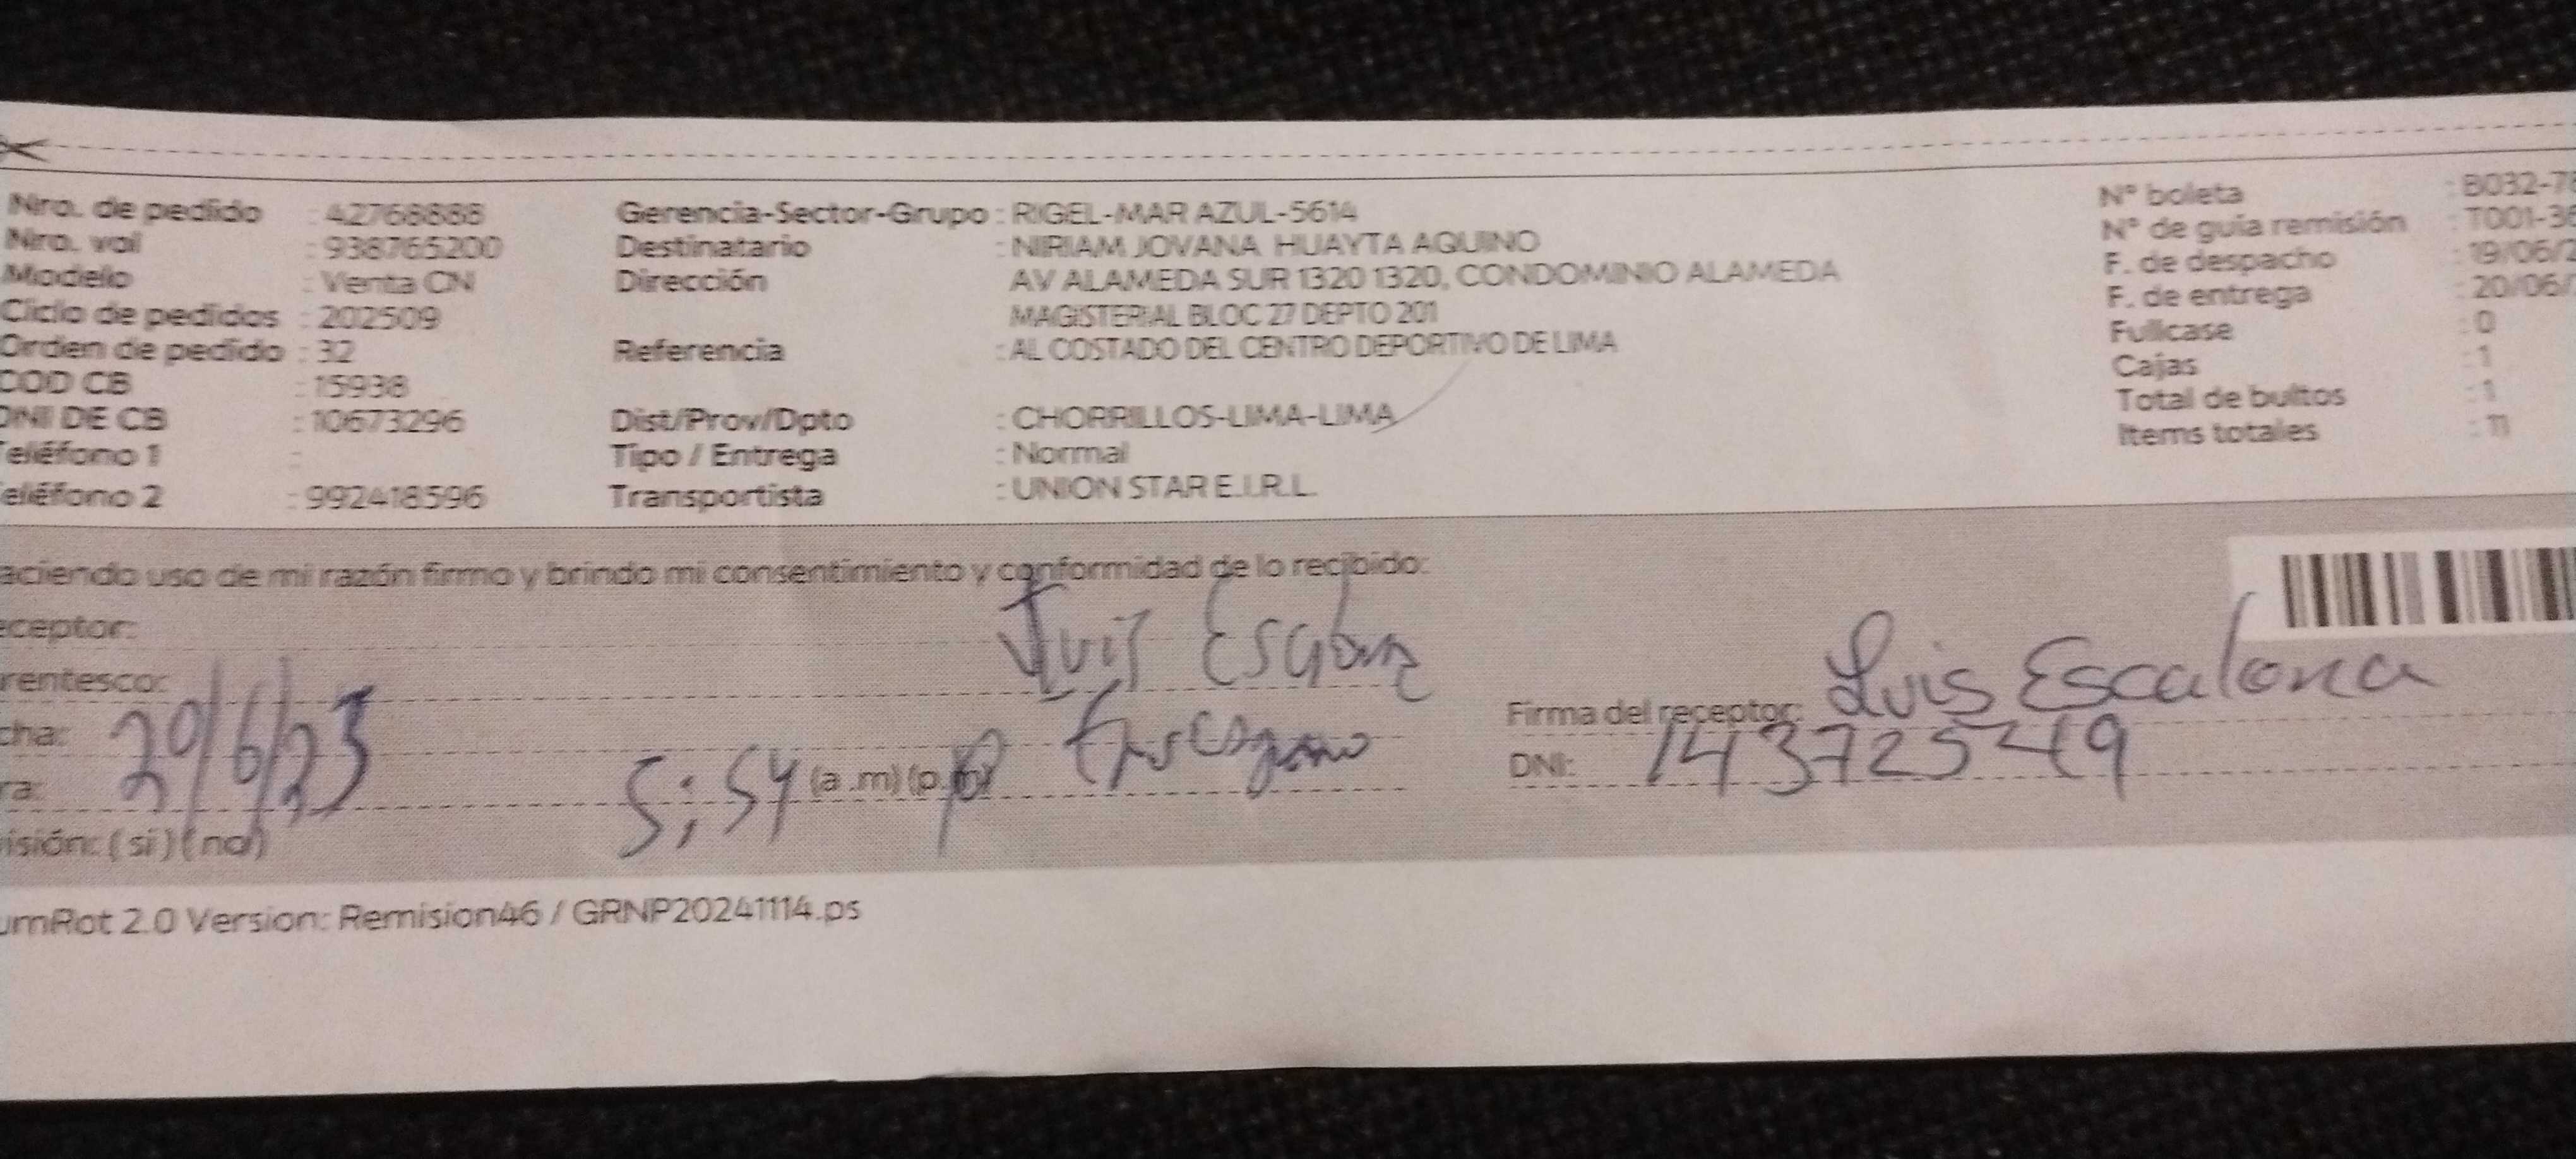 Nro. de pedido : 42768888 Gerencia-Sector-Grupo : RIGEL-MAR AZUL-5614 N° boleta : B032-78
Nro. val : 938765200 Destinatario : NIRIAM JOVANA HUAYTA AQUINO N° de guía remisión : T001-36
Modelo : Venta CN Dirección AV ALAMEDA SUR 1320 1320, CONDOMINIO ALAMEDA F. de despacho : 19/06/2
Ciclo de pedidos : 202509 MAGISTERIAL BLOC 27 DEPTO 201 F. de entrega : 20/06/
Orden de pedido : 32 Referencia : AL COSTADO DEL CENTRO DEPORTIVO DE LIMA Fullcase : 0
COD CB : 15938 Cajas : 1
DNI DE CB : 10673296 Dist/Prov/Dpto : CHORRILLOS-LIMA-LIMA Total de bultos : 1
Teléfono 1 : Tipo / Entrega : Normal Items totales : 11
eléfono 2 : 992418596 Transportista : UNION STAR E.I.R.L.
aciendo uso de mi razón firmo y brindo mi consentimiento y conformidad de lo recibido:
eceptor: Luis
rentesco:
Firma del receptor: Luis Escalona
cha: 20/6/23
DNI: 14372549
ra: 5:54 (a.m) (p.m)
isión: ( si ) ( no )
umRot 2.0 Version: Remision46 / GRNP20241114.ps